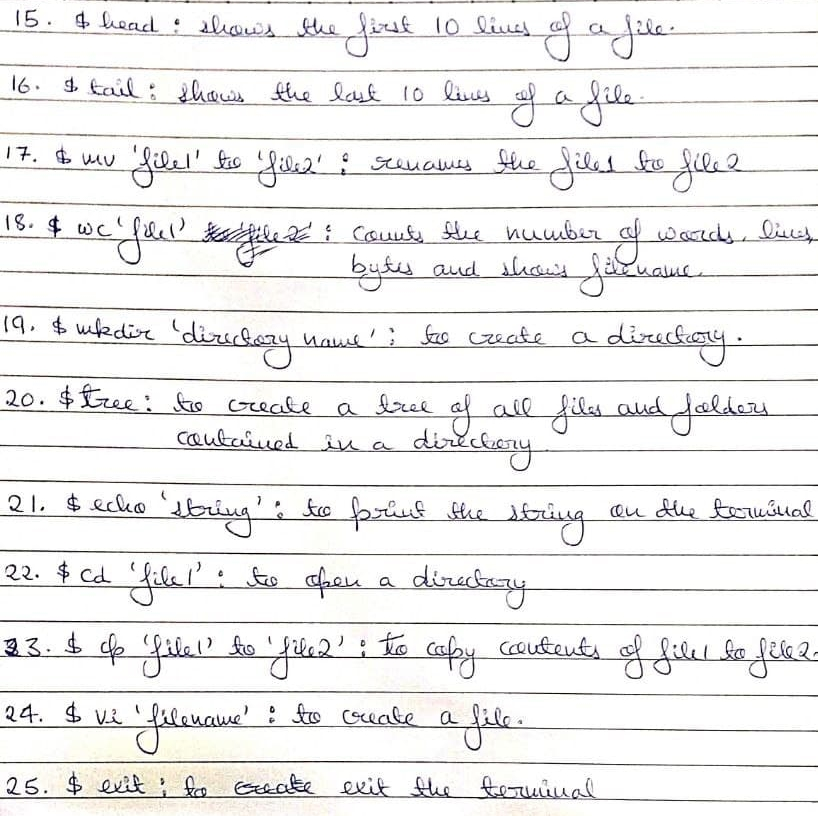 15. $ head : shows the first 10 lines of a file.
16. $ tail : shows the last 10 lines of a file.
17. $ mv 'file1' to 'file2' : renames the file1 to file2
18. $ wc 'file1' : counts the number of words, lines,
bytes and shows filename.
19. $ mkdir 'directory name' : to create a directory.
20. $ tree : to create a tree of all files and folders
contained in a directory
21. $ echo 'string' : to print the string on the terminal
22. $ cd 'file1' : to open a directory
23. $ cp 'file1' to 'file2' : To copy contents of file1 to file2.
24. $ vi 'filename' : to create a file.
25. $ exit : to exit the terminal